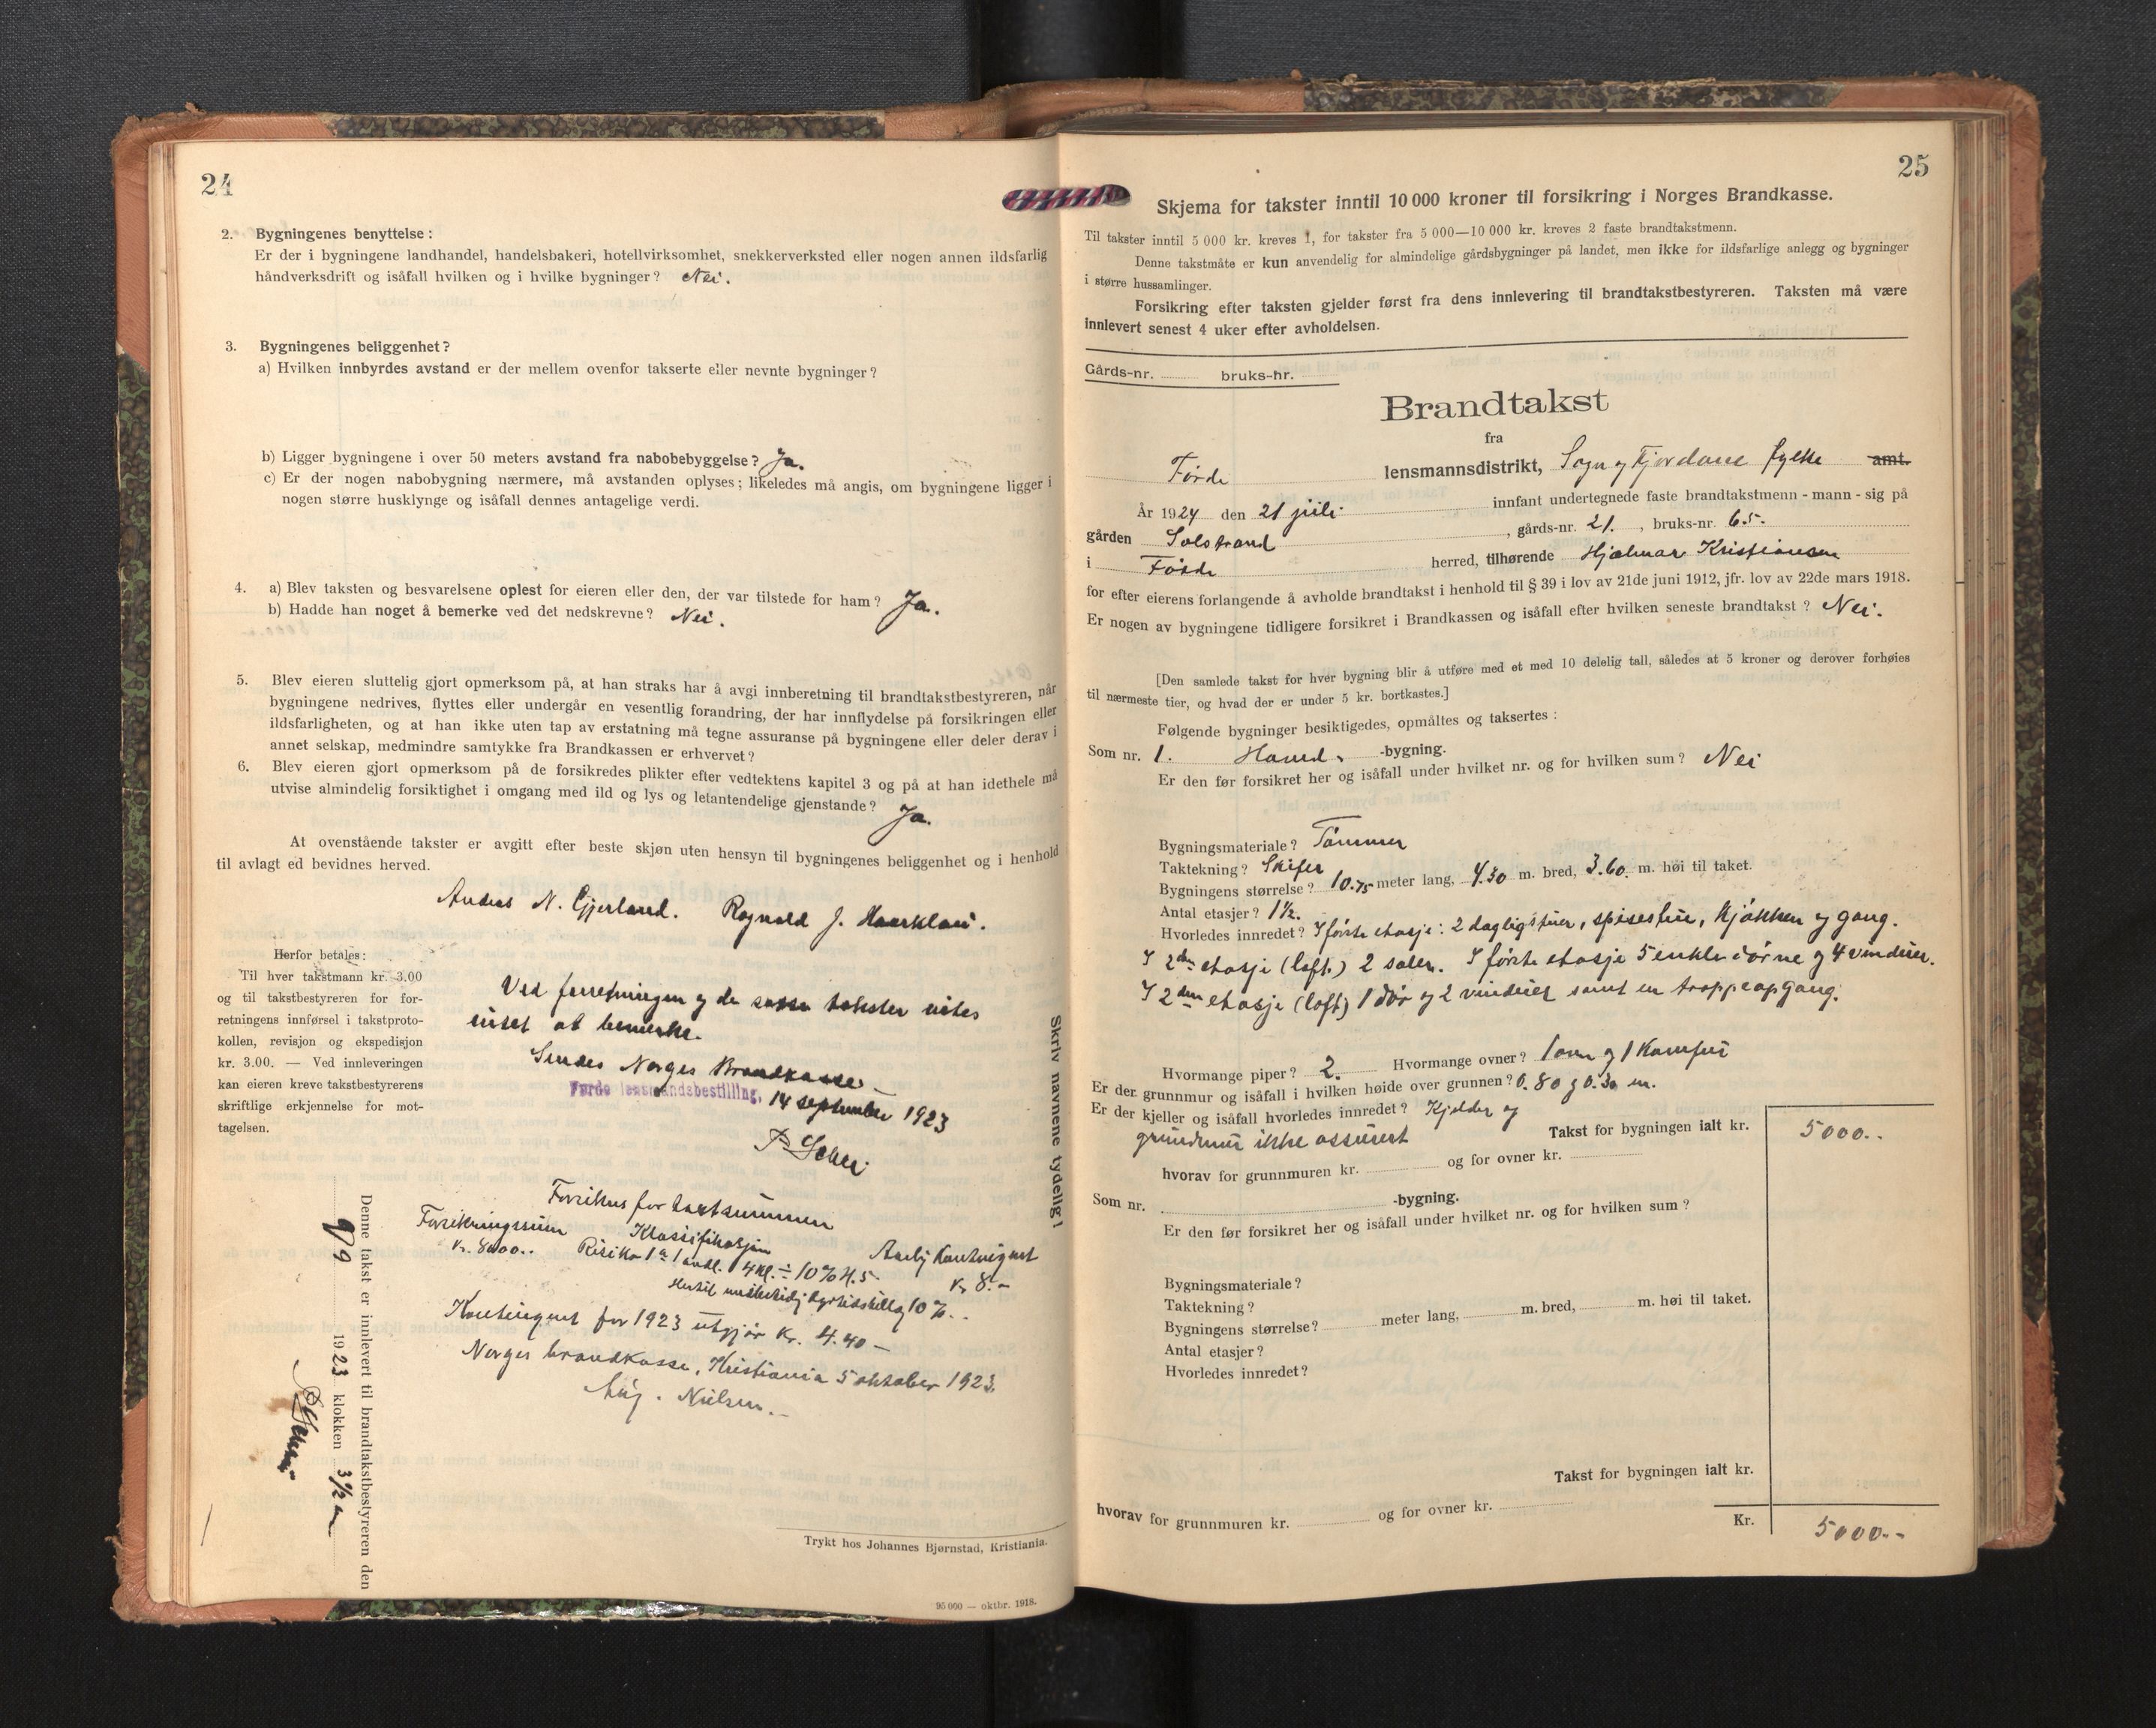 24
2. Bygningenes benyttelse :
Er der i bygningene landhandel, handelsbakeri, hotellvirksomhet, snekkerverksted eller nogen annen ildsfarlig
håndverksdrift og isåfall hvilken og i hvilke bygninger? Nei.
3. Bygningenes beliggenhet?
a) Hvilken innbyrdes avstand er der mellem ovenfor takserte eller nevnte bygninger?
b) Ligger bygningene i over 50 meters avstand fra nabobebyggelse? Ja.
c) Er der nogen nabobygning nærmere, må avstanden oplyses; likeledes må angis, om bygningene ligger i
nogen større husklynge og isåfall dennes antagelige verdi.
4. a) Blev taksten og besvarelsene oplest for eieren eller den, der var tilstede for ham? Ja.
b) Hadde han noget å bemerke ved det nedskrevne? Nei.
5. Blev eieren sluttelig gjort opmerksom på, at han straks har å avgi innberetning til brandtakstbestyreren, når
bygningene nedrives, flyttes eller undergår en vesentlig forandring, der har innflydelse på forsikringen eller
ildsfarligheten, og at han ikke uten tap av erstatning må tegne assuranse på bygningene eller deler derav i
annet selskap, medmindre samtykke fra Brandkassen er erhvervet?
6. Blev eieren gjort opmerksom på de forsikredes plikter efter vedtektens kapitel 3 og på at han idethele må
utvise almindelig forsiktighet i omgang med ild og lys og letantendelige gjenstande? Ja.
At ovenstående takster er avgitt efter beste skjøn uten hensyn til bygningenes beliggenhet og i henhold
til avlagt ed bevidnes herved.
Anders N. Gjerland. Rognald J. Haarklau.
Herfor betales:
Til hver takstmann kr. 3.00
og til takstbestyreren for for-
retningens innførsel i takstproto-
kollen, revisjon og ekspedisjon
kr. 3.00. — Ved innleveringen
kan eieren kreve takstbestyrerens
skriftlige erkjennelse for mot-
tagelsen.
Ved forretningen og de takster vites
intet at bemerke.
Sendes Norges Brandkasse.
Førde lensmandsbestilling, 14 september 1923
Forsikres for takstsummen
Forsikringssum Klassifikasjon Aarlig Kontingent
kr. 8000.. Risiko 1a 1 avd. 4 kl. ÷ 10% H.5 kr 8.-
10%..
Kontingent for 1923 utgjør kr. 4.40 —
Norges brandkasse, Kristiania 5 oktober 1923.
Aug. Nielsen.
Denne takst er innlevert til brandtakstbestyreren den
9/9 1923 klokken 3 1/2
Skriv navnene tydelig!
Trykt hos Johannes Bjørnstad, Kristiania.
95 000 — oktbr. 1918.
25
Skjema for takster inntil 10 000 kroner til forsikring i Norges Brandkasse.
Til takster inntil 5 000 kr. kreves 1, for takster fra 5 000—10 000 kr. kreves 2 faste brandtakstmenn.
Denne takstmåte er kun anvendelig for almindelige gårdsbygninger på landet, men ikke for ildsfarlige anlegg og bygninger
i større hussamlinger.
Forsikring efter taksten gjelder først fra dens innlevering til brandtakstbestyreren. Taksten må være
innlevert senest 4 uker efter avholdelsen.
Gårds-nr. bruks-nr.
Brandtakst
fra
Førde lensmannsdistrikt, Sogn og Fjordane fylke amt.
År 1924 den 21 juli innfant undertegnede faste brandtakstmenn - mann - sig på
gården Solstrand, gårds-nr. 21., bruks-nr. 65.
i Førde herred, tilhørende Hjalmar Kristiansen
for efter eierens forlangende å avholde brandtakst i henhold til § 39 i lov av 21de juni 1912, jfr. lov av 22de mars 1918.
Er nogen av bygningene tidligere forsikret i Brandkassen og isåfall efter hvilken seneste brandtakst? Nei.
[Den samlede takst for hver bygning blir å utføre med et med 10 delelig tall, således at 5 kroner og derover forhøies
til nærmeste tier, og hvad der er under 5 kr. bortkastes.]
Følgende bygninger besiktigedes, opmåltes og taksertes :
Som nr. 1. -bygning.
Er den før forsikret her og isåfall under hvilket nr. og for hvilken sum? Nei
Bygningsmateriale? Tømmer
Taktekning? Skifer
Bygningens størrelse? 10.75 meter lang, 4.30 m. bred, 3.60. m. høi til taket.
Antal etasjer? 1½.
Hvorledes innredet? I første etasje: 2 dagligstuer, spisestue, kjøkken og gang.
I 2den etasje (loft.) 2 saler. I første etasje 5 enkle dørne og 4 vinduer.
I 2den etasje (loft) 1 dør og 2 vinduer samt en trappeopgang.
Hvormange piper? 2. Hvormange ovner? 1 ovn og 1 Komfur
Er der grunnmur og isåfall i hvilken høide over grunnen? 0.80 og 0.30 m.
Er der kjeller og isåfall hvorledes innredet? Kjelder og
grundmur ikke assurert Takst for bygningen ialt kr. 5000..
hvorav for grunnmuren kr. og for ovner kr.
Som nr. -bygning.
Er den før forsikret her og isåfall under hvilket nr. og for hvilken sum?
Bygningsmateriale?
Taktekning?
Bygningens størrelse? meter lang, m. bred, m. høi til taket.
Antal etasjer?
Hvorledes innredet?
Takst for bygningen ialt kr.
hvorav for grunnmuren kr. og for ovner kr.
Kr. 5000.-